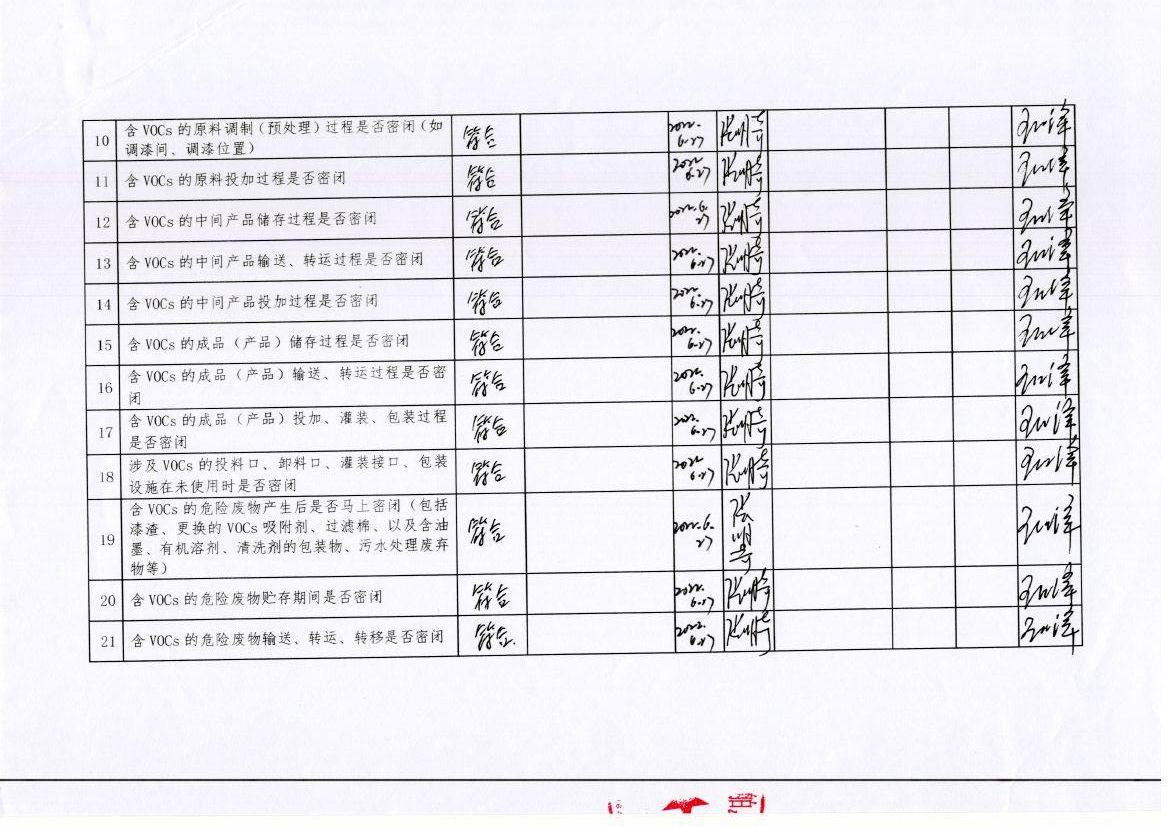 10 含 VOCs 的原料调制（预处理）过程是否密闭（如 符合 2022. 张明奇
调漆间、调漆位置） 6.27
11 含 VOCs 的原料投加过程是否密闭 符合 2022 6.27 张明奇
12 含 VOCs 的中间产品储存过程是否密闭 符合 2022.6. 27 张明奇
13 含 VOCs 的中间产品输送、转运过程是否密闭 符合 2022. 6.27 张明奇
14 含 VOCs 的中间产品投加过程是否密闭 符合 2022. 6.27 张明奇
15 含 VOCs 的成品（产品）储存过程是否密闭 符合 2022. 6.27 张明奇
16 含 VOCs 的成品（产品）输送、转运过程是否密 符合 2022. 张明奇
闭 6.27
17 含 VOCs 的成品（产品）投加、灌装、包装过程 符合 2022. 张明奇
是否密闭 6.27
18 涉及 VOCs 的投料口、卸料口、灌装接口、包装 符合 2022 张明奇
设施在未使用时是否密闭 6.27
19 含 VOCs 的危险废物产生后是否马上密闭（包括 符合 2022.6. 张明奇
漆渣、更换的 VOCs 吸附剂、过滤棉、以及含油 27
墨、有机溶剂、清洗剂的包装物、污水处理废弃
物等）
20 含 VOCs 的危险废物贮存期间是否密闭 符合 2022. 6.27 张明奇
21 含 VOCs 的危险废物输送、转运、转移是否密闭 符合. 2022. 6.27 张明奇